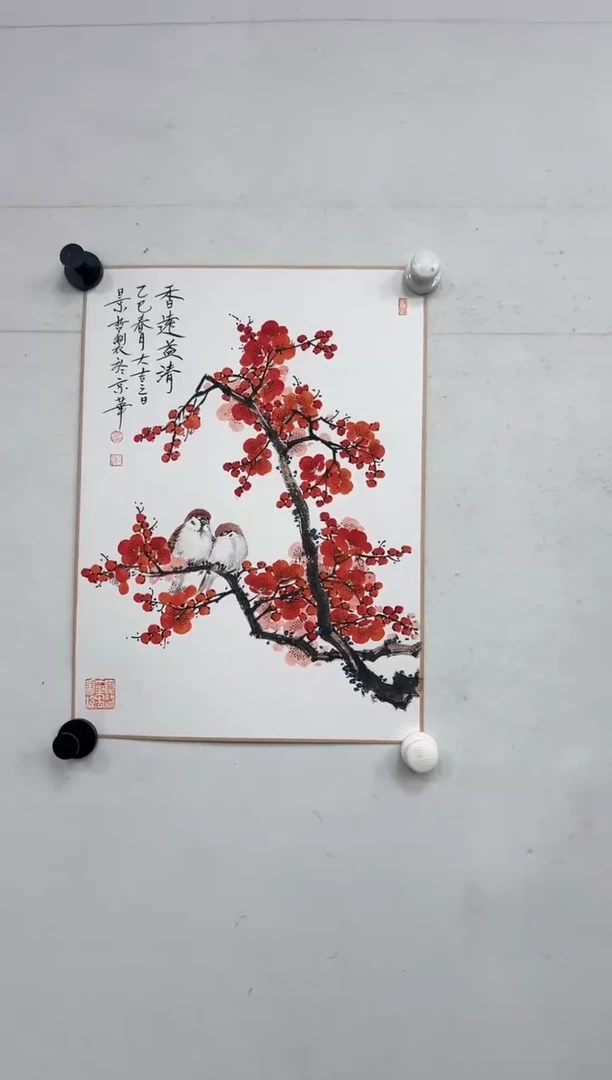 香遠益清
乙巳春月大吉之日
景哲製於京華